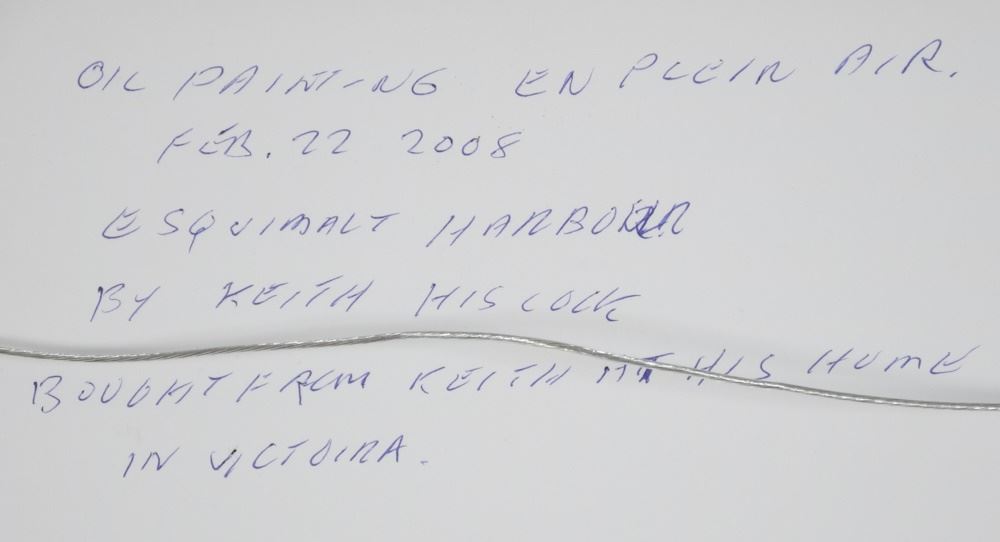 OIL PAINTING EN PLEIN AIR.
FEB. 22 2008
ESQUIMALT HARBOUR
BY KEITH HISCOCK
BOUGHT FROM KEITH AT HIS HOME
IN VICTOIRA.